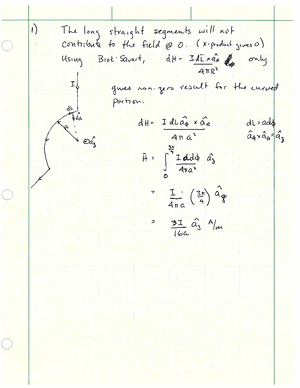 1) The long straight segments will not
contribute to the field @ O. (x-product gives 0)
Using Biot-Savart, dH = I dL × âR / 4πR² only
gives non-zero result for the curved
portion.
I
dL
âR
⊙ â₃
dH = I dL âφ × âR / 4πa² dL = a dφ
H̄ = ∫₀ I a dφ / 4πa² â₃
= I / 4πa · (3π/4) â₃
= 3I / 16a â₃ A/m